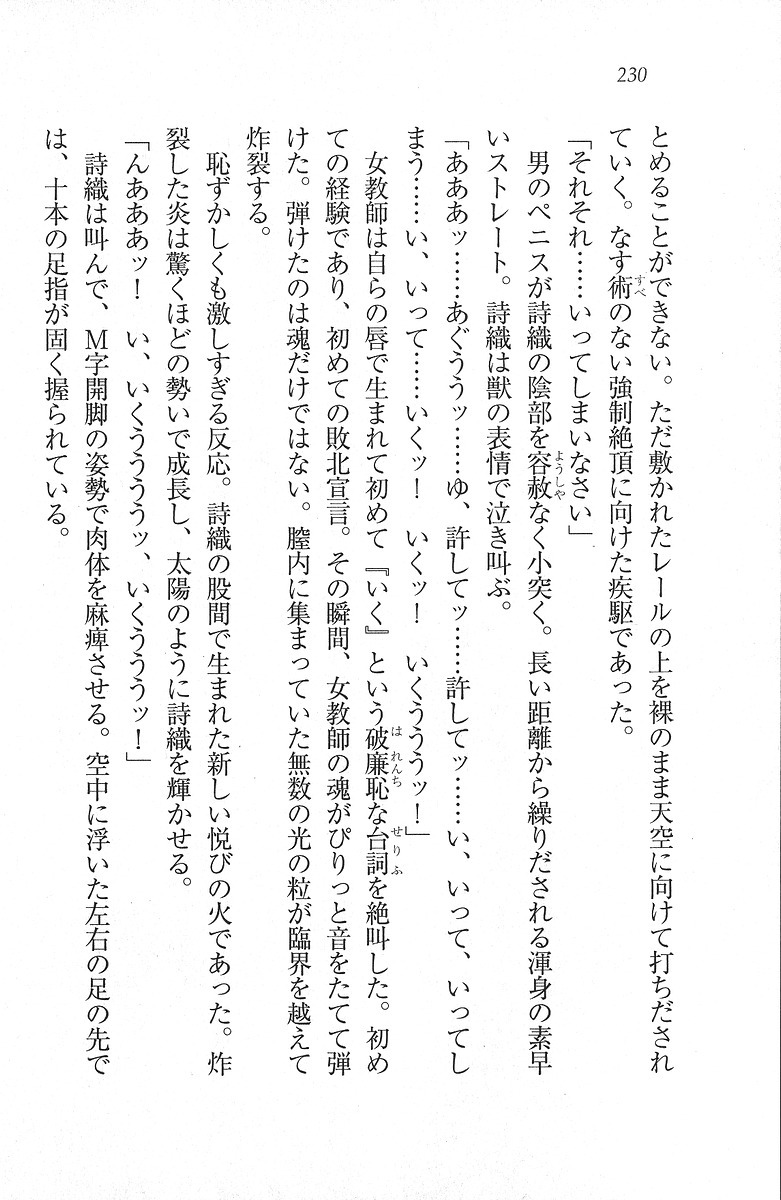 230
とめることができない。ただ敷かれたレールの上を裸のまま天空に向けて打ちだされ
ていく。なす術のない強制絶頂に向けた疾駆であった。
「それそれ……いってしまいなさい」
男のペニスが詩織の陰部を容赦なく小突く。長い距離から繰りだされる渾身の素早
いストレート。詩織は獣の表情で泣き叫ぶ。
「あああッ……あぐううッ……ゆ、許してッ……許してッ……い、いって、いってし
まう……い、いって……いくッ！　いくッ！　いくうううッ！」
女教師は自らの唇で生まれて初めて『いく』という破廉恥な台詞を絶叫した。初め
ての経験であり、初めての敗北宣言。その瞬間、女教師の魂がぴりっと音をたてて弾
けた。弾けたのは魂だけではない。膣内に集まっていた無数の光の粒が臨界を越えて
炸裂する。
恥ずかしくも激しすぎる反応。詩織の股間で生まれた新しい悦びの火であった。炸
裂した炎は驚くほどの勢いで成長し、太陽のように詩織を輝かせる。
「んあああッ！　い、いくううううッ、いくうううッ！」
詩織は叫んで、Ｍ字開脚の姿勢で肉体を麻痺させる。空中に浮いた左右の足の先で
は、十本の足指が固く握られている。